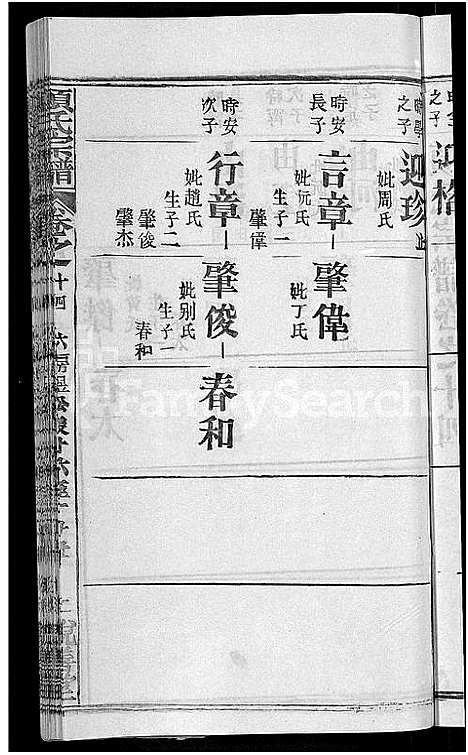 之子
迎格
之子
迎珍 止
妣周氏
時安
長子
言章
妣阮氏
生子一
肇偉
肇偉
妣丁氏
時安
次子
行章
妣趙氏
生子二
肇俊
肇杰
肇俊
妣別氏
生子一
春和
春和
氏宗譜
卷之十四
FamilySearch